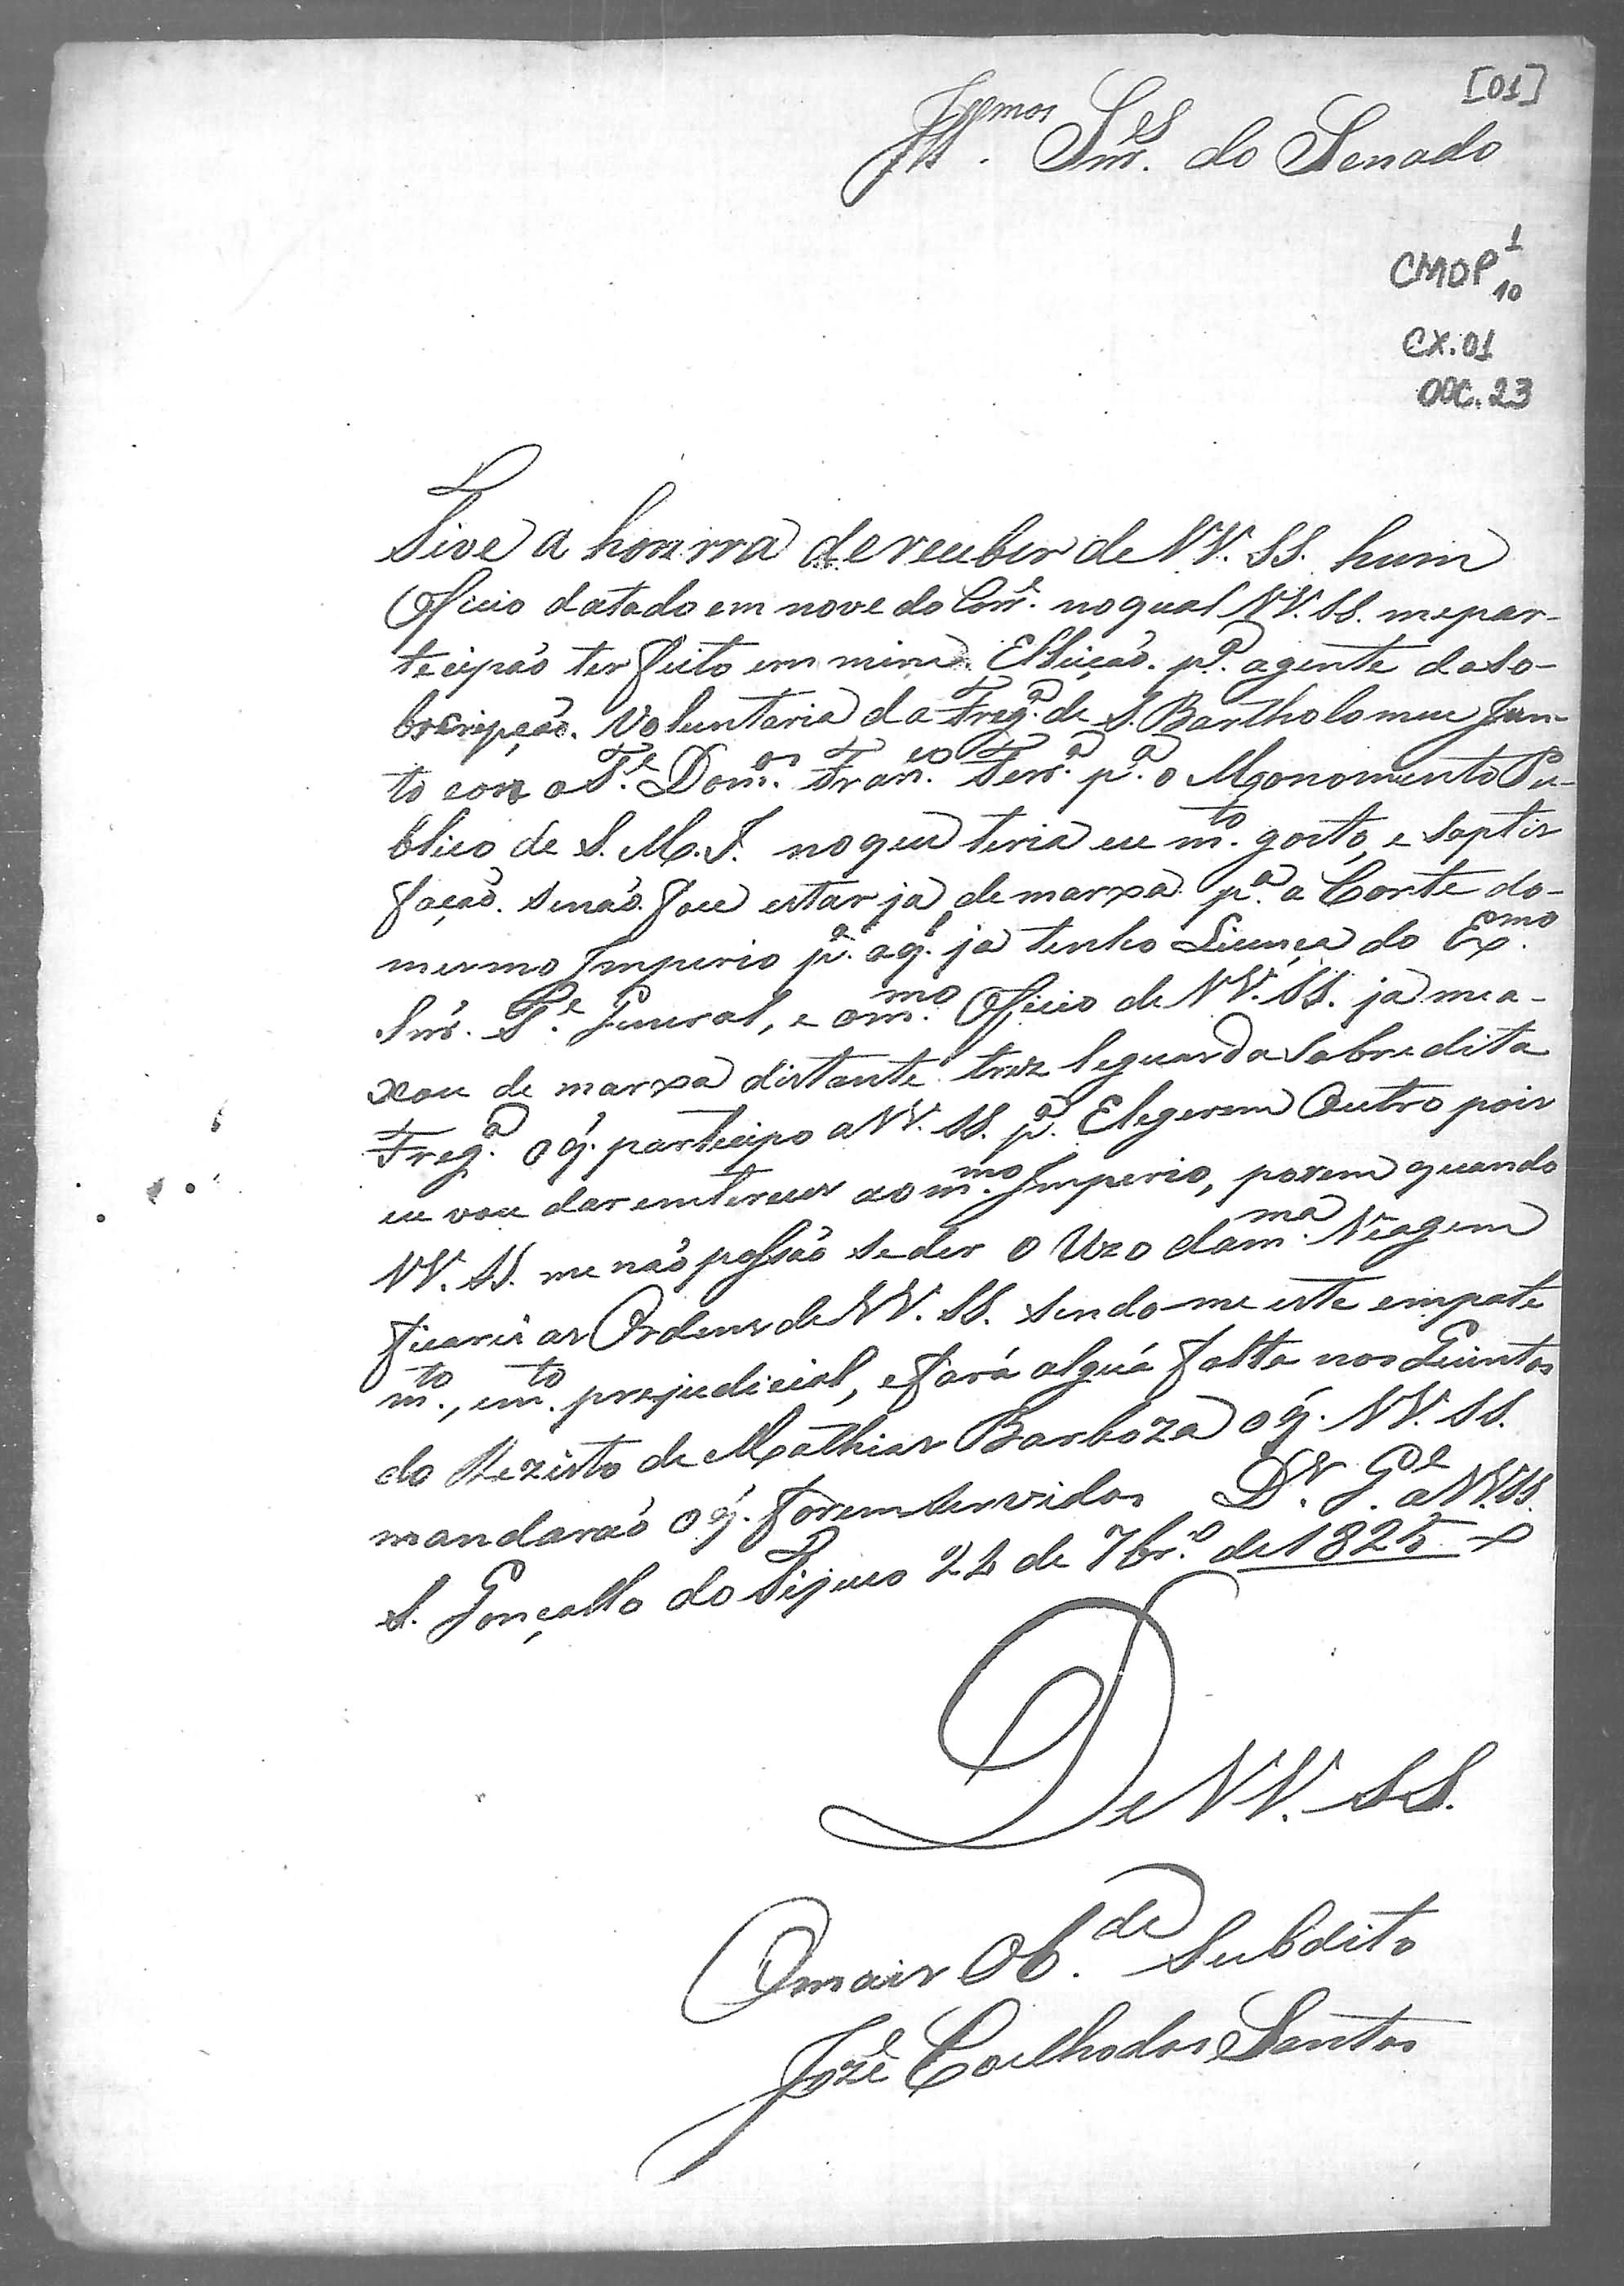 [01]
Illmos. Snrs. do Senado
CMOP 1
10
CX.01
DOC.23
Tive a honrra de receber de VV. SS. hum
Oficio datado em nove do Corre. no qual VV. SS. mepar-
tecipão ter feito em mim Elleição. pa. agente daso-
brcripção. Voluntaria da Frega. de S. Bartholomeu Jun-
to con o Te. Domos. Franco. Ferra. pa. o Monomento Pu-
blico de S. M. I. no que teria eu mto. gosto, e saptis
fação. senão. fou estar ja de marxa pa. a Corte do-
mesmo Imperio pa. oq. ja tenho Licença do Exmo.
Snr. Te. General, e omo. Oficio de VV. SS. ja mea-
xou de marxa distante trez leguas da Sobredita
Frega. oq. partecipo a VV. SS. pa. Elegerem Outro pois
eu vou dar emteresses ao mmo. Imperio, porem quando
VV. SS. me não possão seder o Uzo damma. Viagem
ficarei as Ordens de VV. SS. sendo-me este empate
mto., emto. prejudicial, e fará alguá falta nos Quintos
do Rezisto de Mathias Barboza oq. VV. SS.
mandarão oq. forem servidos Ds. Ge. a VV.SS.
S. Gonçallo do Tijuco 24 de 7bro. de 1825
De VV. SS.
Omais Obde. Subdito
Jozé Coelho dos Santos